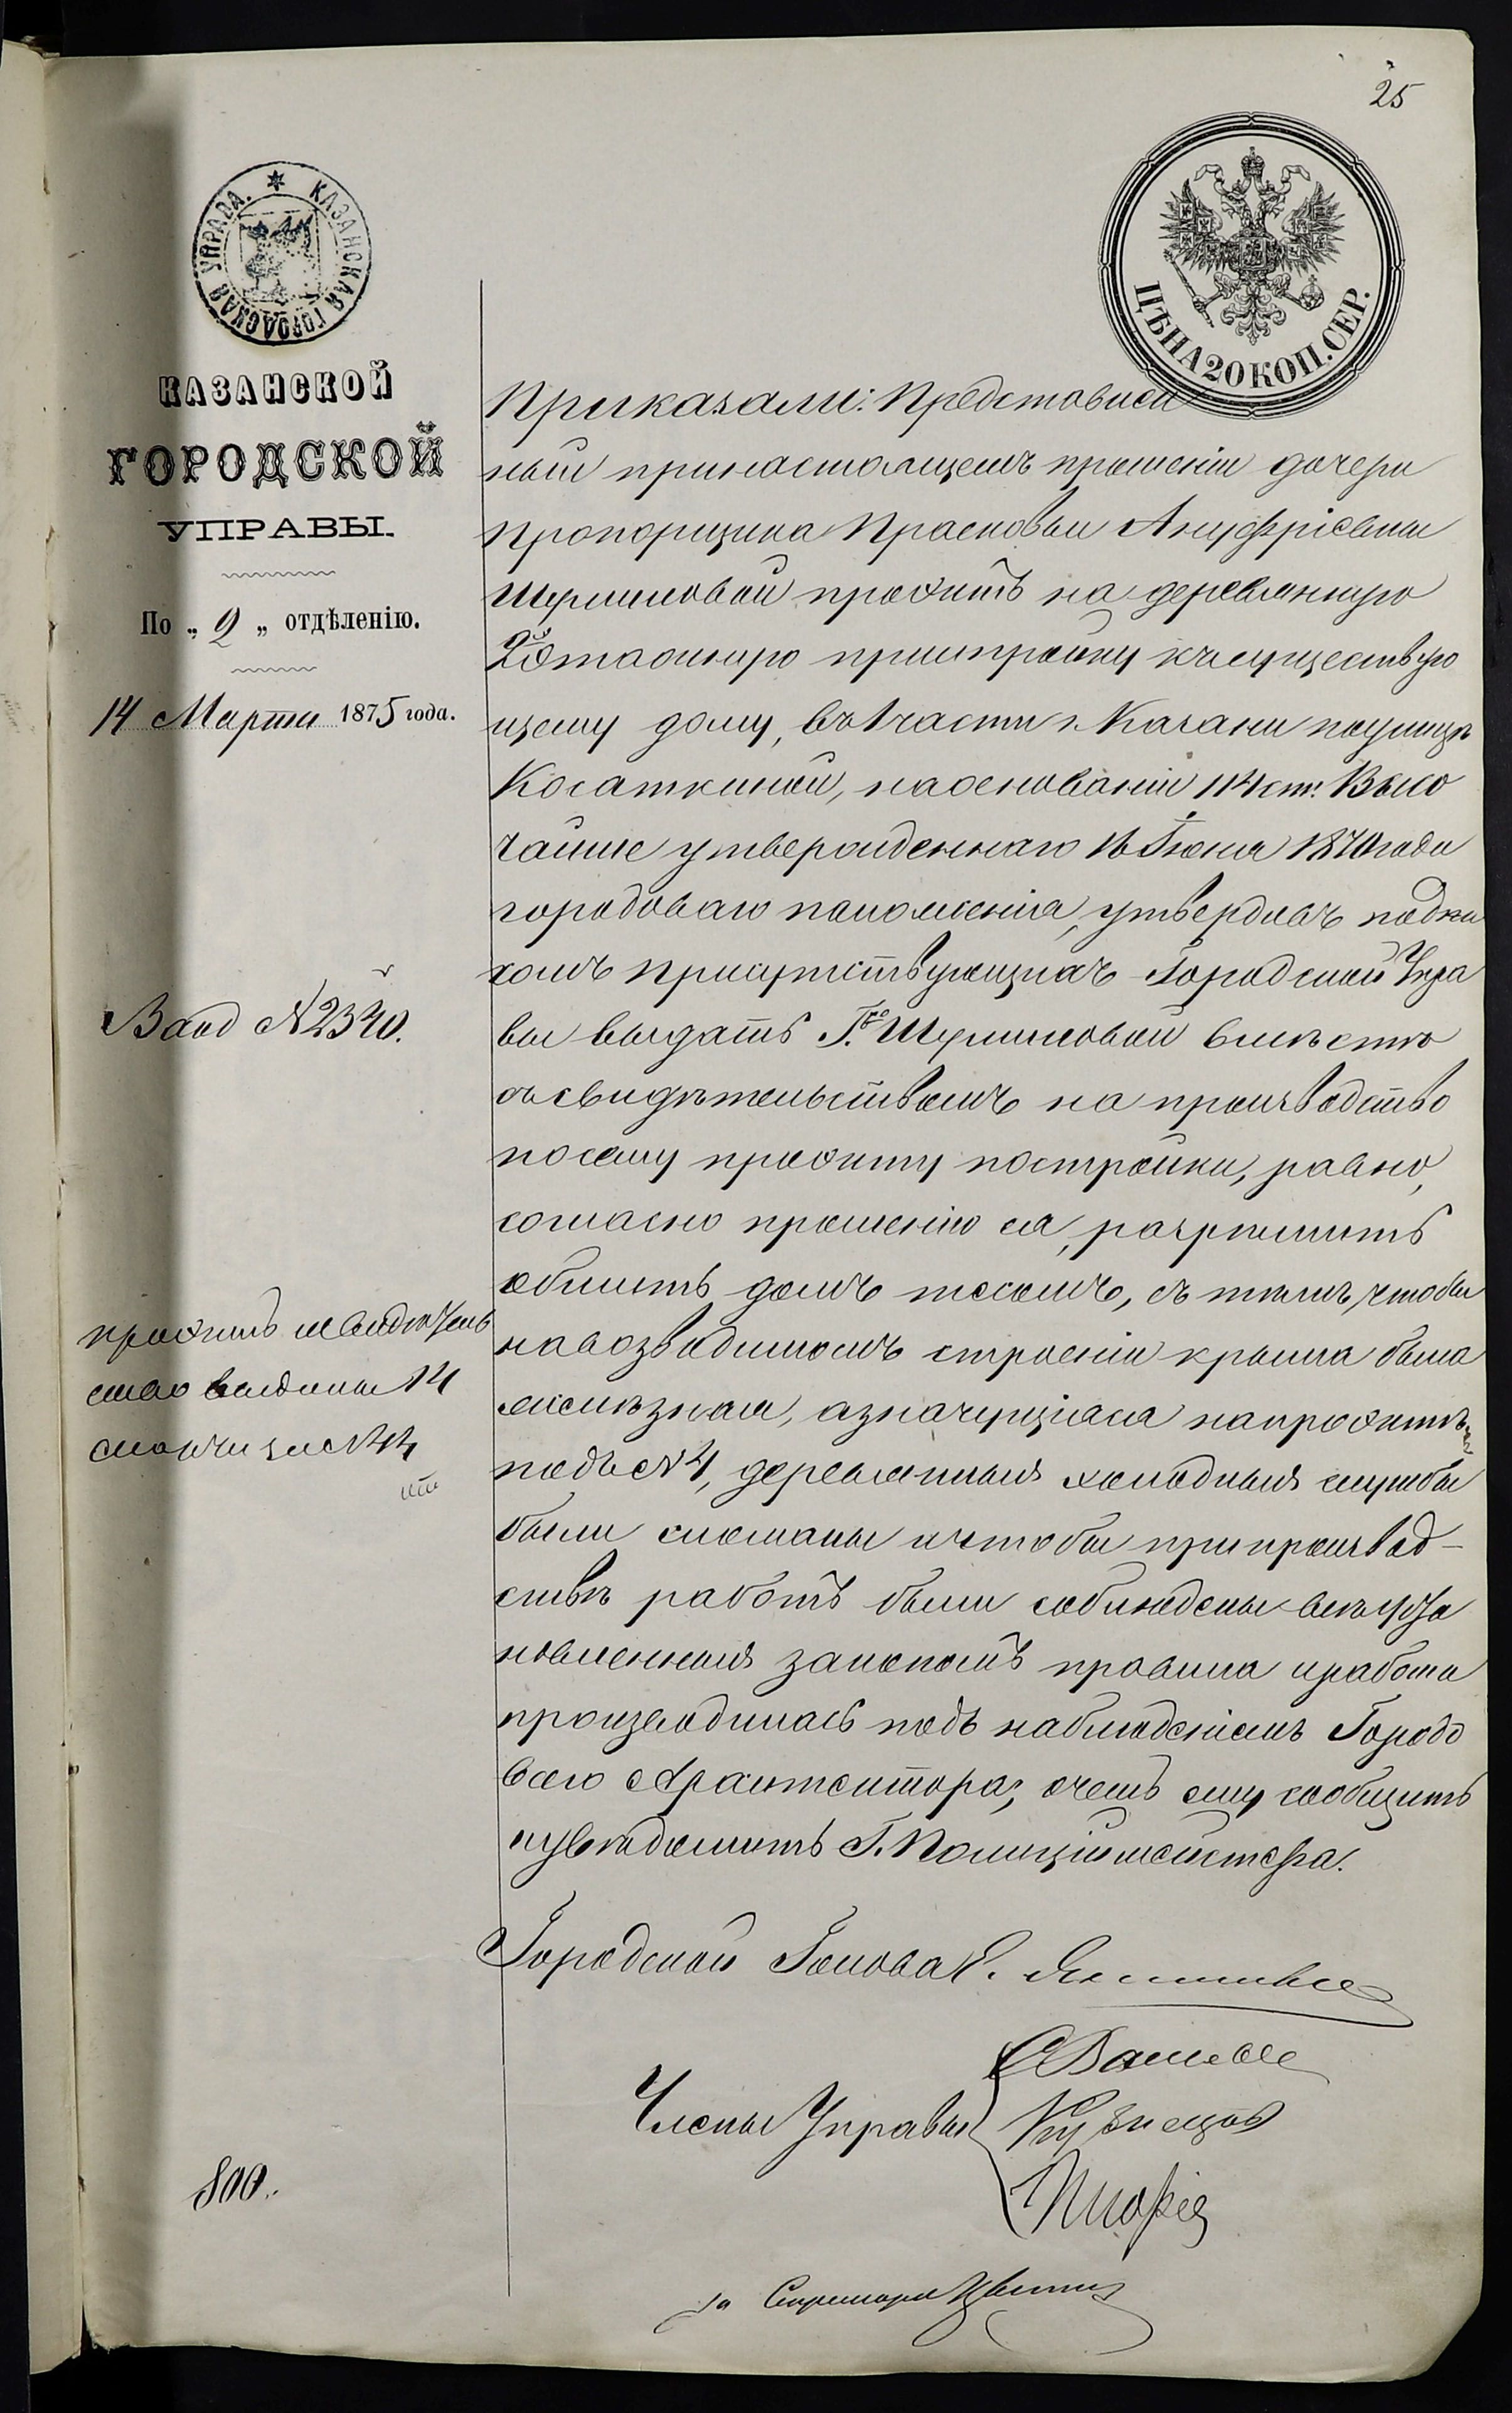 25
КАЗАНСКАЯ ГОРОДСКАЯ УПРАВА.
ЦѢНА 20 КОП. СЕР.
КАЗАНСКОЙ
ГОРОДСКОЙ
УПРАВЫ.
По „ 2 „ отдѣленію.
14 Марта 1875 года.
Приказали: Представлен
ный принастоящемъ прошеніи дочери
Прапорщика Прасковьи Ануфріевны
проэктъ на деревянную
2хъ этажную пристройку къ существую
щему дому, въ 1 части г. Казани поулицѣ
Касаткиной, наоснованіи 114 ст. Высо
чайше утвержденнаго 16 Іюня 1870 года
городоваго положенія, утвердивъ подпи
сомъ присутствующихъ Городской Упра
вы выдать вмѣстѣ
съ свидѣтельствомъ на производство
посему проэкту постройки, равно,
согласно прошенію ея, разрѣшить
обшить домъ тесомъ, съ тѣмъ, чтобы
навозводимомъ строеніи крыша была
желѣзная, азначущіяся напроэктѣ
подъ № 4, деревянныя холодныя службы
были сломаны ичтобы припроизвод-
ствѣ работъ были соблюдены всѣ уста
новленныя закономъ правила иработа
производилась подъ наблюденіемъ Городо
ваго Архитектора; очемъ ему сообщить
иувѣдомить Г. Полиціймейстера.
Вход № 2340.
проэктъ исвидѣтель
ство выданы 14
Городской Голова Е.
Члены Управы
Кузнецов
за Секретаря
800.